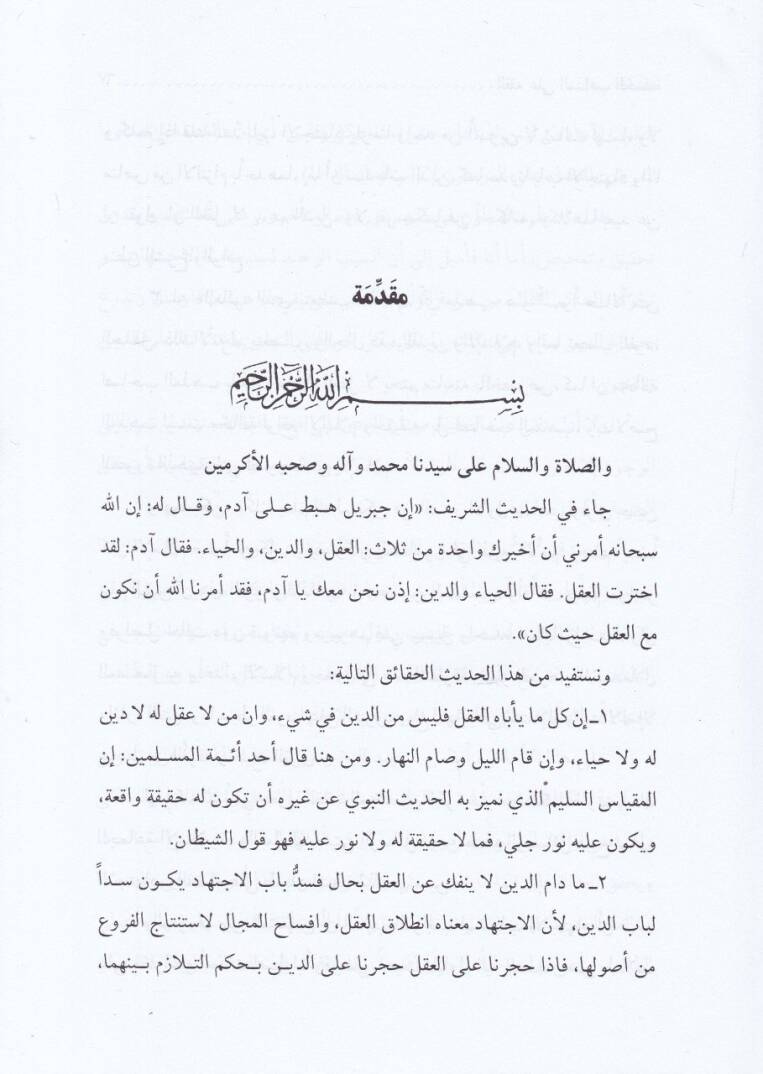 مقَدِّمَة
بِسْمِ اللهِ الرَّحْمٰنِ الرَّحِيمِ
والصلاة والسلام على سيدنا محمد وآله وصحبه الأكرمين
جاء في الحديث الشريف: «إن جبريل هـبـط عـلـى آدم، وقـال له: إن الله
سبحانه أمرني أن أخيرك واحدة من ثلاث: العقل، والدين، والحياء. فقال آدم: لقد
اخترت العقل. فقال الحياء والدين: إذن نحن معك يا آدم، فقد أمرنا الله أن نكون
مع العقل حيث كان».
ونستفيد من هذا الحديث الحقائق التالية:
١ـ إن كل ما يأباه العقل فليس من الدين في شيء، وان من لا عقل له لا دين
له ولا حياء، وإن قام الليل وصام النهار. ومن هنا قال أحد أئـمة المسـلمين: إن
المقياس السليم الذي نميز به الحديث النبوي عن غيره أن تكون له حقيقة واقعة،
ويكون عليه نور جلي، فما لا حقيقة له ولا نور عليه فهو قول الشيطان.
٢ـ ما دام الدين لا ينفك عن العقل بحال فسدُّ باب الاجتهاد يكـون سـداً
لباب الدين، لأن الاجتهاد معناه انطلاق العقل، وافساح المجال لاستنتاج الفروع
من أصولها، فاذا حجرنا على العقل حجرنا على الديـن بـحكم التـلازم بـينهما،